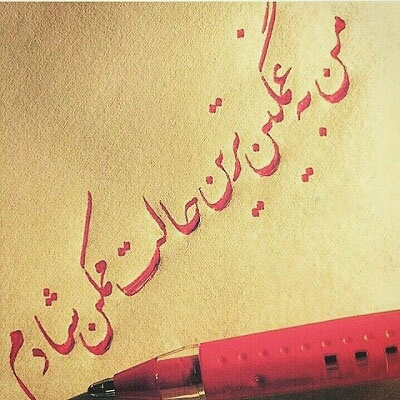 من به غمگین ترین حالت ممکن شادم